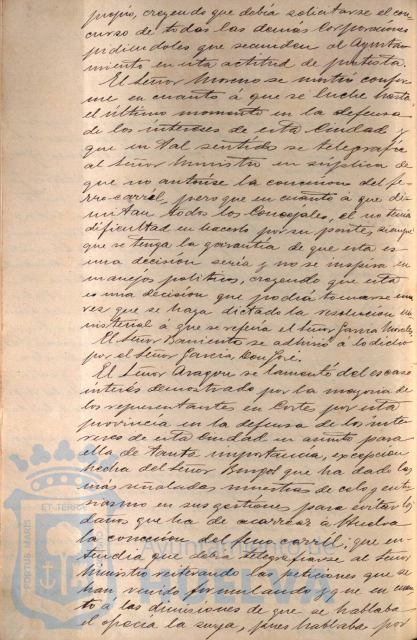 propio, creyendo que debía solicitarse el con-
curso de todas las demás Corporaciones
pidiendoles que secunden al Ayunta-
miento en esta actitud de protesta.
El Señor Moreno se mostró confor-
me en cuanto á que se luche hasta
el último momento en la defensa
de los intereses de esta Ciudad y
que en tal sentido se telegrafíe
al Señor Ministro en súplica de
que no autorise la concesion del fe-
rro-carril, pero que en cuanto a que di-
mitan todos los Concejales, el no tenia
dificultad en hacerlo por su parte, siempre
que se tenga la garantia de que esta es
una decision seria y no se inspira en
manejos politicos, creyendo que esta
es una decisión que podria tomarse una
vez que se haya dictado la resolucion mi-
nisterial á que se referia el Señor Garcia Morales.
El Señor Barriento se adhirió á lo dicho
por el Señor Garcia Don José.
El Señor Aragon se lamentó del escaso
interés demostrado por la mayoria de
los representantes en Cortes por esta
provincia en la defensa de los inte-
reses de esta Ciudad en asunto para
ella de tanta importancia, excepcion
hecha del Señor Burgos que ha dado las
más señaladas muestras de celo y entu-
siasmo en sus gestiones para evitar los
daños que ha de acarrear á Huelva
la concesion del ferro carril; que en-
tendia que debia telegrafiarse al Señor
Ministro reiterando las peticiones que se
han venido formulando y que en cuan-
to a las dimisiones de que se hablaba
el ofrecia la suya, pues hablaba por
PORTUS MARIS
ET TERRAE
Ayuntamiento de
HUELVA